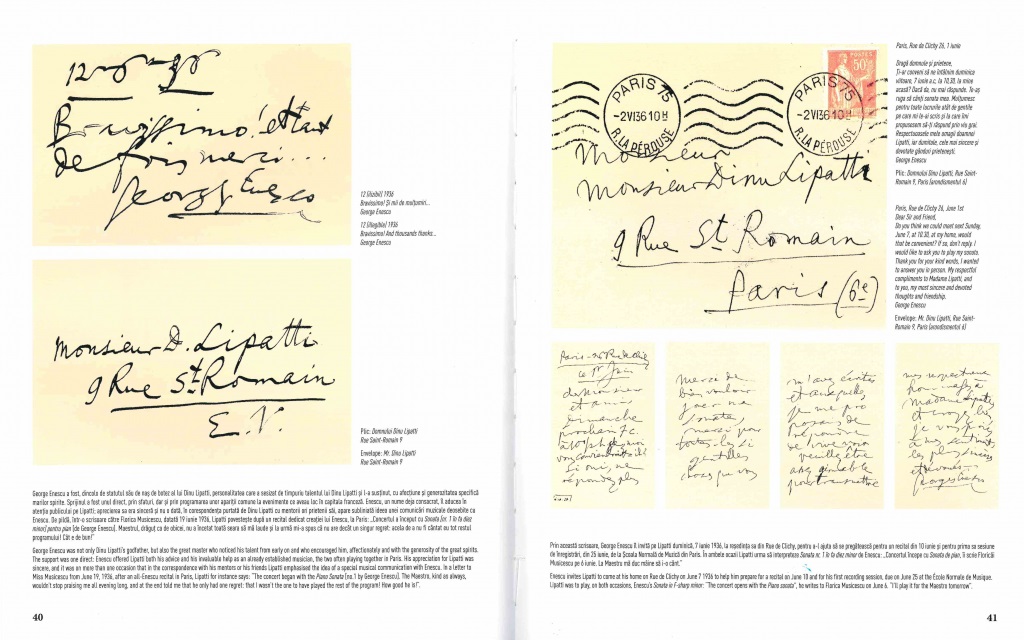 Bravissimo! et
de fois merci...
Georges Enesco
12 [ilizibil] 1936
Bravissimo! Și mii de mulțumiri...
George Enescu
12 [illegible] 1936
Bravissimo! And thousands thanks...
George Enescu
Monsieur D. Lipatti
9 Rue St Romain
E.V.
Plic: Domnului Dinu Lipatti
Rue Saint-Romain 9
Envelope: Mr. Dinu Lipatti
Rue Saint-Romain 9
George Enescu a fost, dincolo de statutul său de naș de botez al lui Dinu Lipatti, personalitatea care a sesizat de timpuriu talentul lui Dinu Lipatti și l-a susținut, cu afecțiune și generozitatea specifică
marilor spirite. Sprijinul a fost unul direct, prin sfaturi, dar și prin programarea unor apariții comune la evenimente ce aveau loc în capitala franceză. Enescu, un nume deja consacrat, îl aducea în
atenția publicului pe Lipatti; aprecierea sa era sinceră și nu o dată, în corespondența purtată de Dinu Lipatti cu mentorii ori prietenii săi, apare subliniată ideea unei comunicări muzicale deosebite cu
Enescu. De pildă, într-o scrisoare către Florica Musicescu, datată 19 iunie 1936, Lipatti povestește după un recital dedicat creației lui Enescu, la Paris: „Concertul a început cu Sonata [nr. 1 în fa diez
minor] pentru pian [de George Enescu]. Maestrul, drăguț ca de obicei, nu a încetat toată seara să mă laude și la urmă mi-a spus că nu are decât un singur regret: acela de a nu fi cântat eu tot restul
programului! Cât e de bun!”
George Enescu was not only Dinu Lipatti's godfather, but also the great master who noticed his talent from early on and who encouraged him, affectionately and with the generosity of the great spirits.
The support was one direct: Enescu offered Lipatti both his advice and his invaluable help as an already established musician, the two often playing together in Paris. His appreciation for Lipatti was
sincere, and it was on more than one occasion that in the correspondence with his mentors or his friends Lipatti emphasised the idea of a special musical communication with Enescu. In a letter to
Miss Musicescu from June 19, 1936, after an all-Enescu recital in Paris, Lipatti for instance says: "The concert began with the Piano Sonata [no.1 by George Enescu]. The Maestro, kind as always,
wouldn't stop praising me all evening long, and at the end told me that he only had one regret: that I wasn't the one to have played the rest of the program! How good he is!".
40
POSTES
50c
PARIS 75
-2 VI 36 10H
R. LA PÉROUSE
PARIS 75
-2 VI 36 10H
R. LA PÉROUSE
Monsieur
Monsieur Dinu Lipatti
9 Rue St Romain
Paris (6e)
Paris, Rue de Clichy 26, 1 iunie
Dragă domnule și prietene,
Ți-ar conveni să ne întâlnim duminica
viitoare, 7 iunie a.c, la 10.30, la mine
acasă? Dacă da, nu mai răspunde. Te-aș
ruga să cânți sonata mea. Mulțumesc
pentru toate lucrurile atât de gentile
pe care mi le-ai scris și la care îmi
propusesem să-ți răspund prin viu grai.
Respectuoasele mele omagii doamnei
Lipatti, iar dumitale, cele mai sincere și
devotate gânduri prietenești.
George Enescu
Plic: Domnului Dinu Lipatti, Rue Saint-
Romain 9, Paris (arondismentul 6)
Paris, Rue de Clichy 26, June 1st
Dear Sir and Friend,
Do you think we could meet next Sunday,
June 7, at 10.30, at my home, would
that be convenient? If so, don't reply. I
would like to ask you to play my sonata.
Thank you for your kind words, I wanted
to answer you in person. My respectful
compliments to Madame Lipatti, and
to you, my most sincere and devoted
thoughts and friendship.
George Enescu
Envelope: Mr. Dinu Lipatti, Rue Saint-
Romain 9, Paris (arondismentul 6)
ce 1er Juin
et ami
dimanche
prochain 7 c.
Si oui, ne
répondez plus
Merci de
bien vouloir
jouer ma
sonate
merci pour
toutes les si
gentilles
choses que vous
m'avez écrites
et auxquelles
je me pro
posais de
répondre
de vive voix
veuillez être
mes respectueux
hommages à
Madame Lipatti
et croyez
les plus sincères
Prin această scrisoare, George Enescu îl invită pe Lipatti duminică, 7 iunie 1936, la reședința sa din Rue de Clichy, pentru a-l ajuta să se pregătească pentru un recital din 10 iunie și pentru prima sa sesiune
de înregistrări, din 25 iunie, de la Școala Normală de Muzică din Paris. În ambele ocazii Lipatti urma să interpreteze Sonata nr. 1 în fa diez minor de Enescu: „Concertul începe cu Sonata de pian, îi scrie Floricăi
Musicescu pe 6 iunie. La Maestro mă duc mâine să i-o cânt.”
Enescu invites Lipatti to come at his home on Rue de Clichy on June 7 1936 to help him prepare for a recital on June 10 and for his first recording session, due on June 25 at the École Normale de Musique.
Lipatti was to play, on both occasions, Enescu's Sonata in F-sharp minor: "The concert opens with the Piano sonata", he writes to Florica Musicescu on June 6. "I'll play it for the Maestro tomorrow".
41